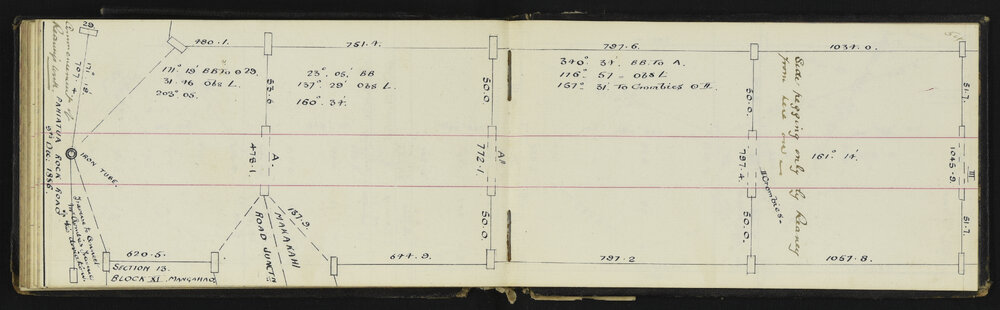 29.
171° 18'
707.4
Commencement of
Kearney's work
PAHIATUA ROCK ROAD
9th Dec. 1886.
IRON TUBE.
480.1.
751.4.
797.6.
1034.0.
171° 19' BB To ⊙ 29.
31.46 Obs L.
203° 05'.
23° 05' BB
137° 29' Obs L.
160° 34'.
340° 34' BB. To A.
176° 57 - Obs L
157° 31' To Crombies ⊙ II.
53.6
50.0.
50.0.
51.7.
A.
478.1.
A°
772.1.
797.4.
II Crombies.
Side pegging only by Kearney
from here on
161° 14'.
III
1045.9.
157.9.
MAKAKAHI
ROAD JUNCTN
50.0.
50.0.
51.7.
620.5.
644.9.
797.2
1057.8.
SECTION 13.
BLOCK XI. MANGAHAO